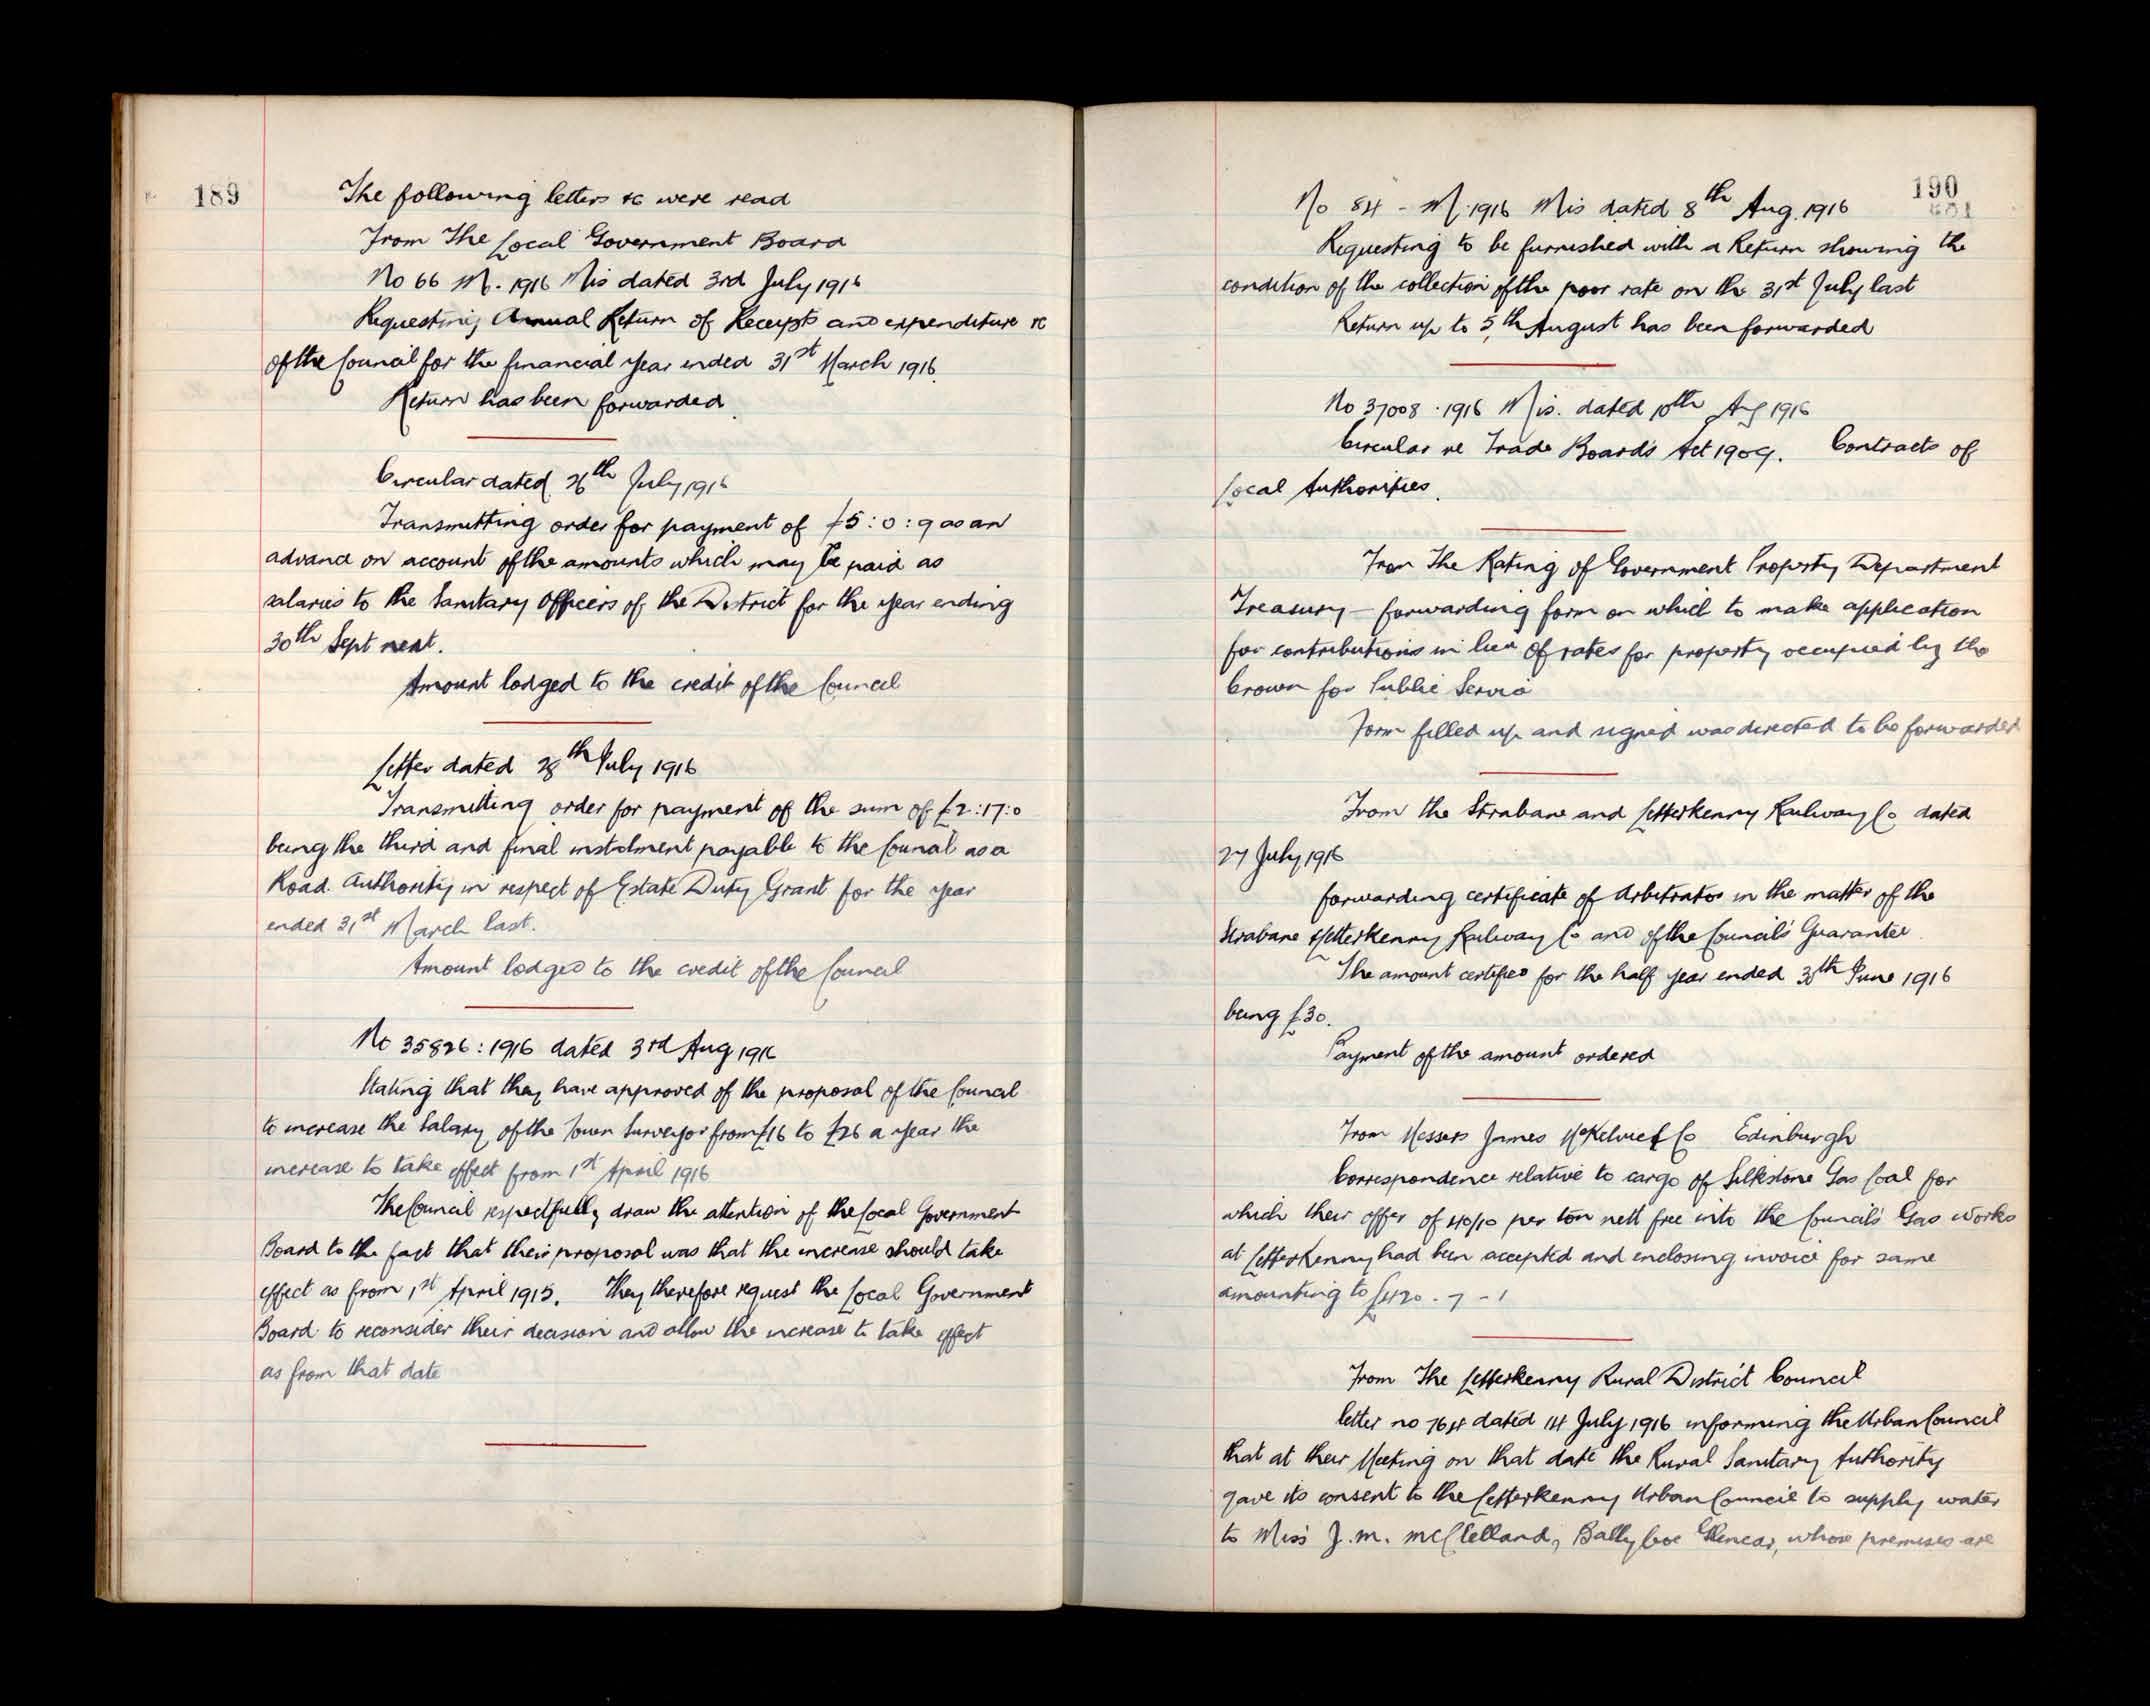 189
The following letters &c were read
From The Local Government Board
No 66 M. 1916 Mis dated 3rd July 1916
Requesting Annual Return of Receipts and expenditure &c
of the Council for the financial year ended 31st March 1916.
Return has been forwarded.
Circular dated 26th July 1916
Transmitting order for payment of £5:0:9 as an
advance on account of the amounts which may be paid as
salaries to the Sanitary Officers of the District for the year ending
30th Sept next.
Amount lodged to the credit of the Council
Letter dated 28th July 1916
Transmitting order for payment of the sum of £2:17:0
being the third and final instalment payable to the Council as a
Road Authority in respect of Estate Duty Grant for the year
ended 31st March last.
Amount lodged to the credit of the Council
No 35826:1916 dated 3rd Aug 1916
Stating that they have approved of the proposal of the Council
to increase the Salary of the Town Surveyor from £16 to £26 a year the
increase to take effect from 1st April 1916
The Council respectfully draw the attention of the Local Government
Board to the fact that their proposal was that the increase should take
effect as from 1st April 1915. They therefore request the Local Government
Board to reconsider their decision and allow the increase to take effect
as from that date
190
No 84 - M.1916 Mis dated 8th Aug. 1916
Requesting to be furnished with a Return showing the
condition of the collection of the poor rate on the 31st July last
Return up to 5th August has been forwarded
No 37008.1916 Mis. dated 10th Aug 1916
Circular re Trade Boards Act 1909. Contracts of
Local Authorities.
From The Rating of Government Property Department
Treasury - forwarding form on which to make application
for contributions in lieu of rates for property occupied by the
Crown for Public Service
Form filled up and signed was directed to be forwarded
From the Strabane and Letterkenny Railway Co dated
27 July 1916
forwarding certificate of Arbitrator in the matter of the
Strabane & Letterkenny Railway Co and of the Council's Guarantee.
The amount certified for the half year ended 30th June 1916
being £30.
Payment of the amount ordered
From Messrs James McKelvie & Co Edinburgh
Correspondence relative to cargo of Silkstone Gas Coal for
which their offer of 40/10 per ton nett free into the Council's Gas Works
at Letterkenny had been accepted and enclosing invoice for same
amounting to £420-7-1
From The Letterkenny Rural District Council
letter no 764 dated 14 July 1916 informing the Urban Council
that at their Meeting on that date the Rural Sanitary Authority
gave its consent to the Letterkenny Urban Council to supply water
to Miss J. M. McClelland, Ballyboe Glencar, whose premises are